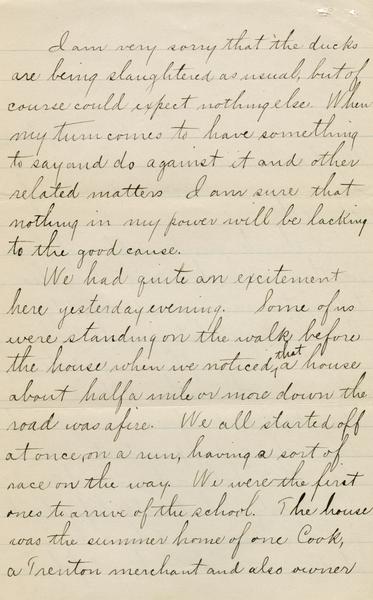 I am very sorry that the ducks
are being slaughtered as usual, but of
course could expect nothing else. When
my turn comes to have something
to say and do against it and other
related matters I am sure that
nothing in my power will be lacking
to the good cause.
We had quite an excitement
here yesterday evening. Some of us
were standing on the walk before
the house when we noticed, that a house
about half a mile or more down the
road was afire. We all started off
at once, on a run, having a sort of
race on the way. We were the first
ones to arrive of the school. The house
was the summer home of one Cook,
a Trenton merchant and also owner